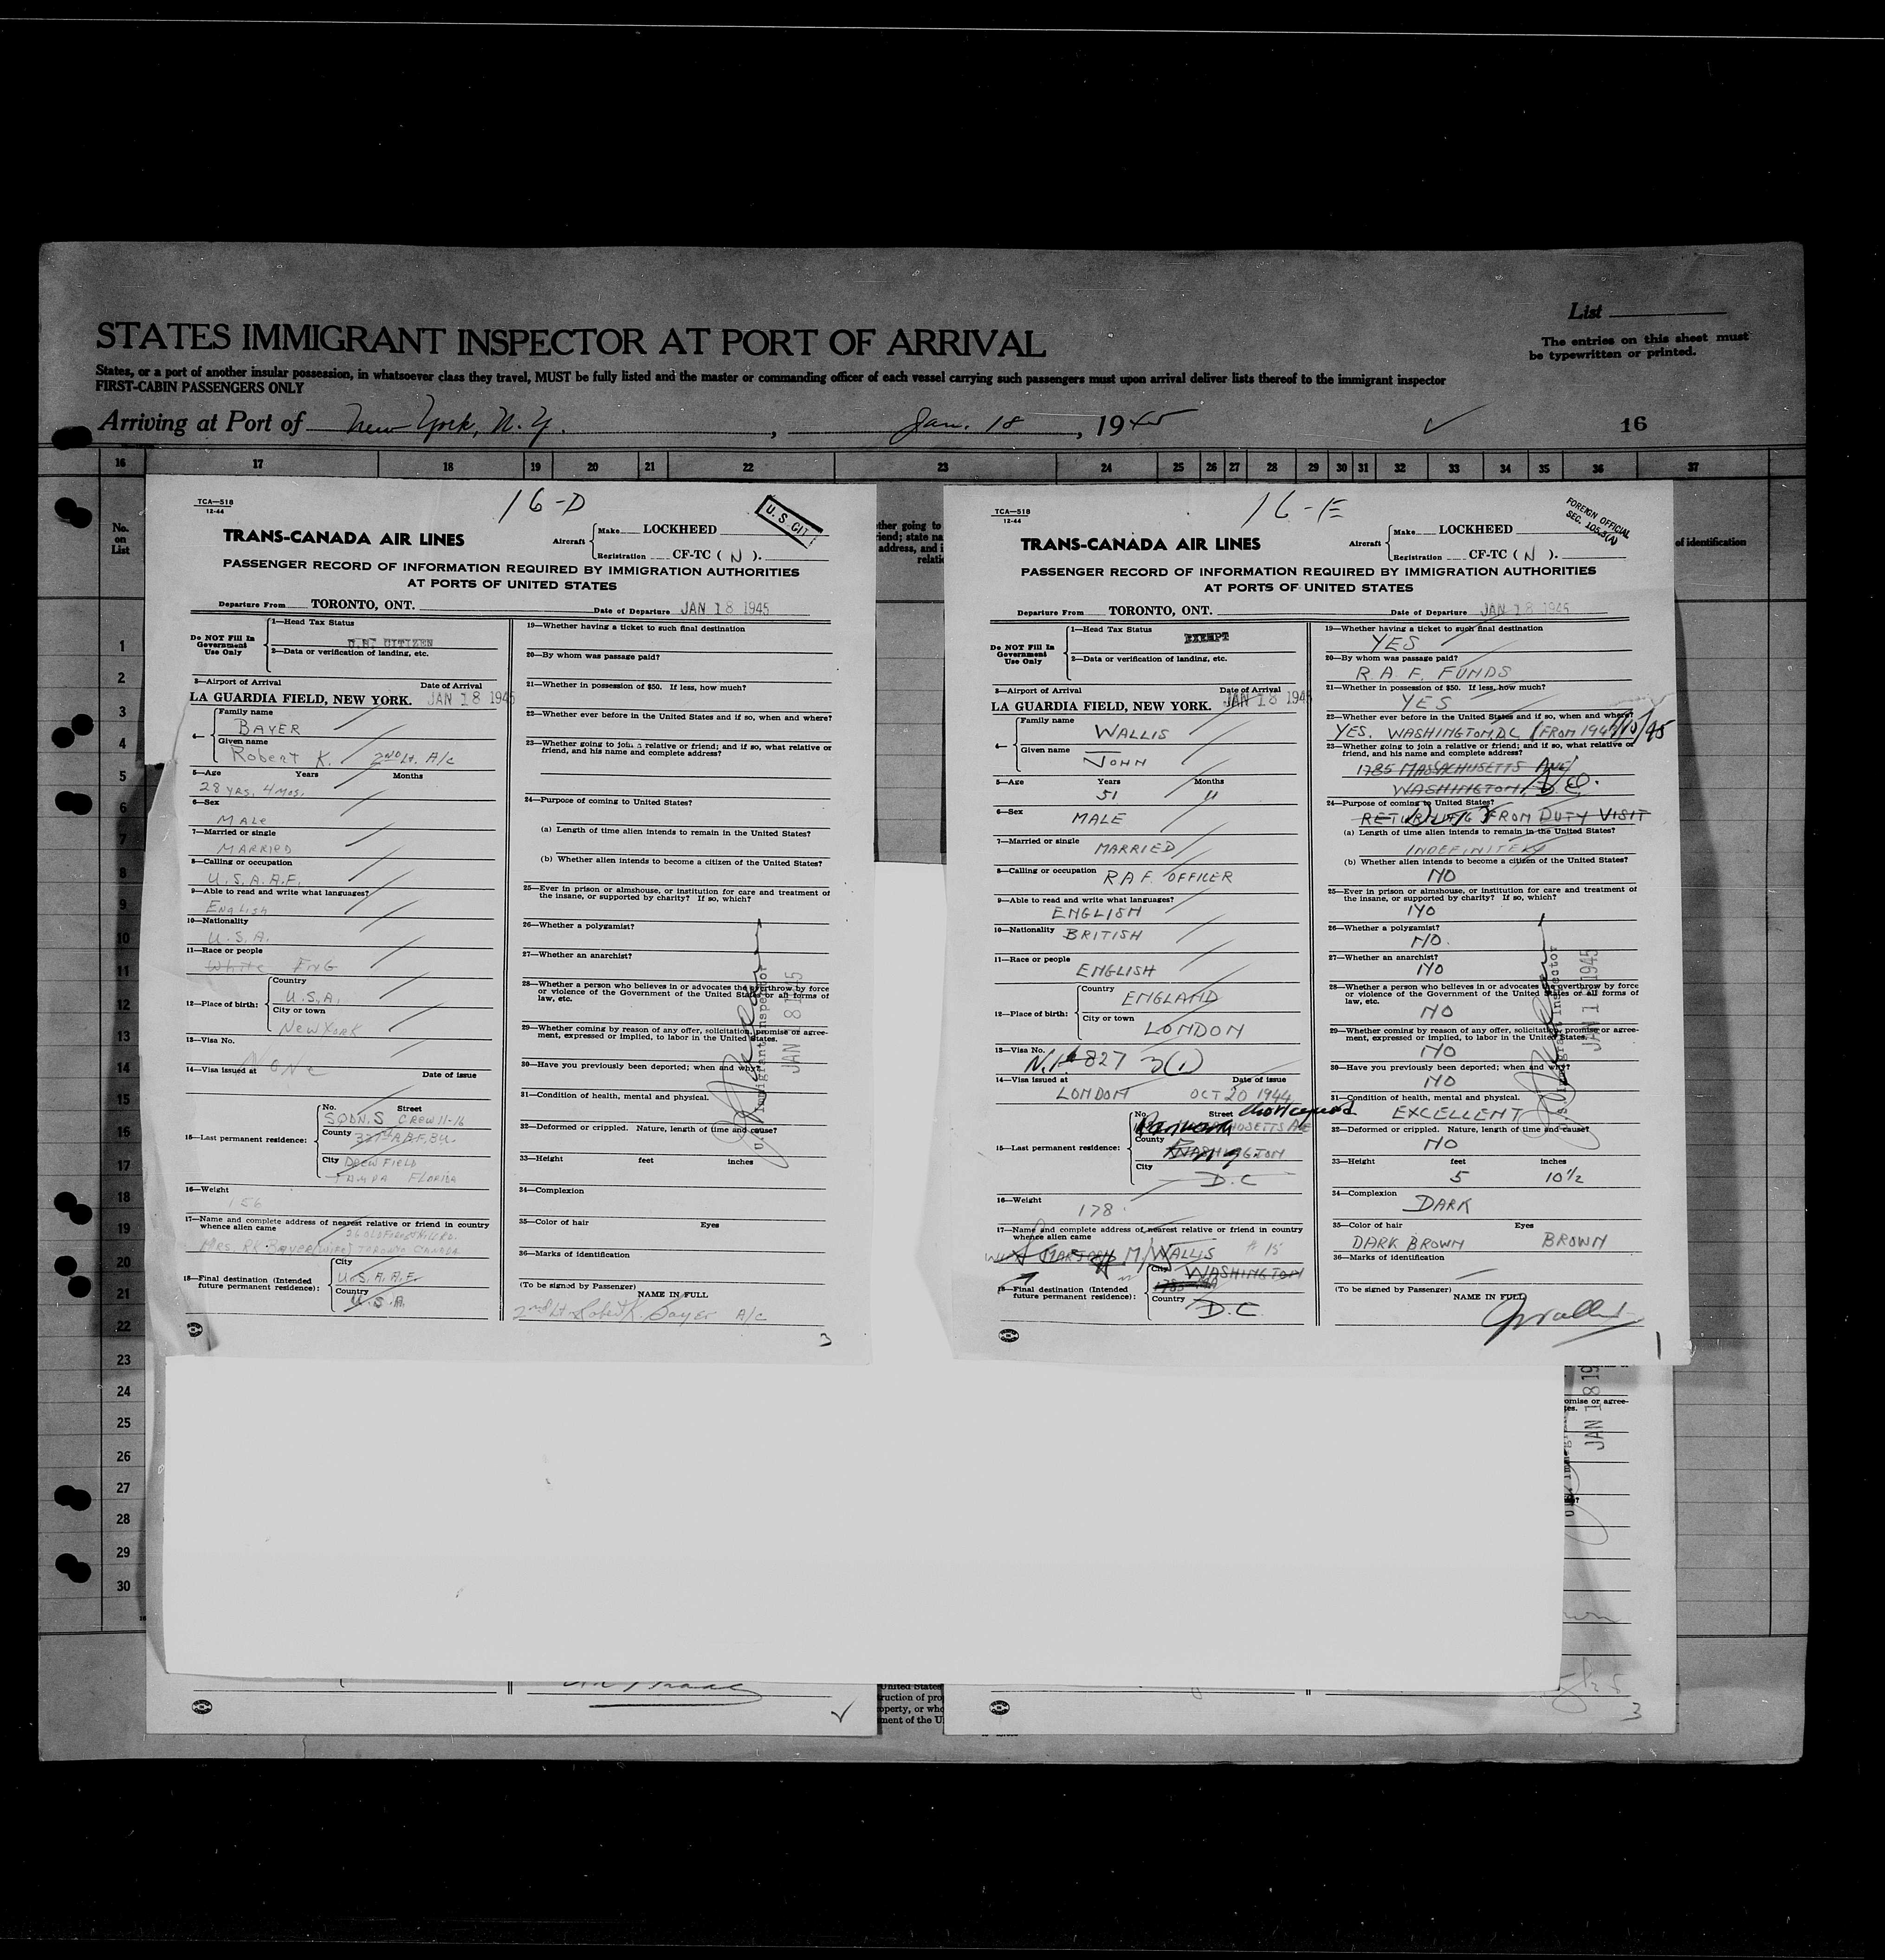 List
STATES IMMIGRANT INSPECTOR AT PORT OF ARRIVAL
The entries on this sheet must
be typewritten or printed.
States, or a port of another insular possession, in whatsoever class they travel, MUST be fully listed and the master or commanding officer of each vessel carrying such passengers must upon arrival deliver lists thereof to the immigrant inspector
FIRST-CABIN PASSENGERS ONLY
Arriving at Port of New York, N.Y. , Jan. 18 , 1945 16
16 17 18 19 20 21 22 23 24 25 26 27 28 29 30 31 32 33 34 35 36 37
No.
on
List
1
2
3
4
5
6
7
8
9
10
11
12
13
14
15
16
17
18
19
20
21
22
23
24
25
26
27
28
29
30
TCA—518
12-44
16-D
U.S. CIT
TRANS-CANADA AIR LINES
Aircraft
Make LOCKHEED
Registration CF-TC ( N ).
PASSENGER RECORD OF INFORMATION REQUIRED BY IMMIGRATION AUTHORITIES
AT PORTS OF UNITED STATES
Departure From TORONTO, ONT. Date of Departure JAN 18 1945
Do NOT Fill In
Government
Use Only
1—Head Tax Status
U.S. CITIZEN
2—Data or verification of landing, etc.
3—Airport of Arrival Date of Arrival
LA GUARDIA FIELD, NEW YORK. JAN 18 1945
4—
Family name
BAYER
Given name
Robert K. 2nd Lt. A/C
5—Age Years Months
28 YRS. 4 MOS.
6—Sex
MALE
7—Married or single
MARRIED
8—Calling or occupation
U.S.A.A.F.
9—Able to read and write what languages?
ENGLISH
10—Nationality
U.S.A.
11—Race or people
White ENG
12—Place of birth:
Country
U.S.A.
City or town
NEW YORK
13—Visa No.
NONE
14—Visa issued at Date of issue
15—Last permanent residence:
No. Street
SQDN. S CREW 11-16
County
City DREW FIELD
TAMPA FLORIDA
16—Weight
156
17—Name and complete address of nearest relative or friend in country
whence alien came
MRS. RK. BAYER (WIFE) TORONTO CANADA
18—Final destination (Intended
future permanent residence):
City
U.S.A.A.F.
Country
U.S.A.
19—Whether having a ticket to such final destination
20—By whom was passage paid?
21—Whether in possession of $50. If less, how much?
22—Whether ever before in the United States and if so, when and where?
23—Whether going to join a relative or friend; and if so, what relative or
friend, and his name and complete address?
24—Purpose of coming to United States?
(a) Length of time alien intends to remain in the United States?
(b) Whether alien intends to become a citizen of the United States?
25—Ever in prison or almshouse, or institution for care and treatment of
the insane, or supported by charity? If so, which?
26—Whether a polygamist?
27—Whether an anarchist?
28—Whether a person who believes in or advocates the overthrow by force
or violence of the Government of the United States or all forms of
law, etc.
29—Whether coming by reason of any offer, solicitation, promise or agree-
ment, expressed or implied, to labor in the United States.
30—Have you previously been deported; when and why?
31—Condition of health, mental and physical.
32—Deformed or crippled. Nature, length of time and cause?
33—Height feet inches
34—Complexion
35—Color of hair Eyes
36—Marks of identification
(To be signed by Passenger)
NAME IN FULL
2nd Lt. Robert K. Bayer A/C
3
U.S. Immigrant Inspector
TCA—518
12-44
16-E
FOREIGN OFFICIAL
TRANS-CANADA AIR LINES
Aircraft
Make LOCKHEED
Registration CF-TC ( N ).
PASSENGER RECORD OF INFORMATION REQUIRED BY IMMIGRATION AUTHORITIES
AT PORTS OF UNITED STATES
Departure From TORONTO, ONT. Date of Departure JAN 18 1945
Do NOT Fill In
Government
Use Only
1—Head Tax Status
EXEMPT
2—Data or verification of landing, etc.
3—Airport of Arrival Date of Arrival
LA GUARDIA FIELD, NEW YORK. JAN 18 1945
4—
Family name
WALLIS
Given name
JOHN
5—Age Years Months
51 11
6—Sex
MALE
7—Married or single
MARRIED
8—Calling or occupation RAF. OFFICER
9—Able to read and write what languages?
ENGLISH
10—Nationality BRITISH
11—Race or people
ENGLISH
12—Place of birth:
Country
ENGLAND
City or town
LONDON
13—Visa No.
N.I.# 827 3(1)
14—Visa issued at Date of issue
LONDON OCT 20 1944
15—Last permanent residence:
No. Street
County
City
D.C
16—Weight
178
17—Name and complete address of nearest relative or friend in country
whence alien came
M WALLIS # 15
18—Final destination (Intended
future permanent residence):
City WASHINGTON
Country
D.C.
19—Whether having a ticket to such final destination
YES
20—By whom was passage paid?
R.A.F. FUNDS
21—Whether in possession of $50. If less, how much?
YES
22—Whether ever before in the United States and if so, when and where?
YES. WASHINGTON DC
23—Whether going to join a relative or friend; and if so, what relative or
friend, and his name and complete address?
1785 MASSACHUSETTS AVE
WASHINGTON D.C.
24—Purpose of coming to United States?
RETURNING FROM DUTY VISIT
(a) Length of time alien intends to remain in the United States?
INDEFINITELY
(b) Whether alien intends to become a citizen of the United States?
NO
25—Ever in prison or almshouse, or institution for care and treatment of
the insane, or supported by charity? If so, which?
NO
26—Whether a polygamist?
NO.
27—Whether an anarchist?
NO
28—Whether a person who believes in or advocates the overthrow by force
or violence of the Government of the United States or all forms of
law, etc.
NO
29—Whether coming by reason of any offer, solicitation, promise or agree-
ment, expressed or implied, to labor in the United States.
NO
30—Have you previously been deported; when and why?
NO
31—Condition of health, mental and physical.
EXCELLENT
32—Deformed or crippled. Nature, length of time and cause?
NO
33—Height feet inches
5 10½
34—Complexion
DARK
35—Color of hair Eyes
DARK BROWN BROWN
36—Marks of identification
(To be signed by Passenger)
NAME IN FULL
JWallis
1
of identification
3